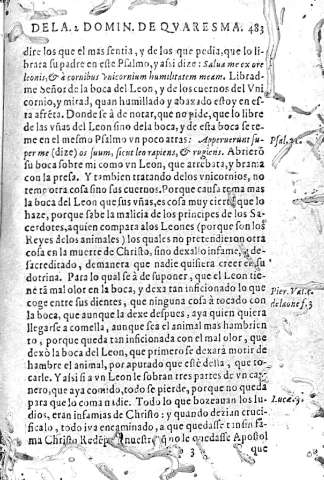 DE LA. 2 DOMIN. DE QVARESMA. 483
dire los que el mas sentia, y de los que pedia, que lo li-
brata su padre en este Psalmo, y assi dize: Salua me ex ore
leonis, & à cornibus vnicornium humilitatem meam. Librad-
me Señor de la boca del Leon, y de los cuernos del Vni
cornio, y mirad, quan humillado y abaxado estoy en es-
ta afrēta. Donde se à de notar, que no pide, que lo libre
de las vñas del Leon sino dela boca, y de esta boca se te-
me en el mesmo Psalmo vn poco atras: Apperuerunt su-
per me (dize) os suum, sicut leo rapiens, & rugiens. Abrierō
su boca sobre mi como vn Leon, que arrebata, y brama
con la presa. Y tambien tratando delos vnicornios, no
teme otra cosa sino sus cuernos. Porque causa tema mas
la boca del Leon que sus vñas, es cosa muy cierta que lo
haze, porque sabe la malicia de los principes de los Sa-
cerdotes, a quien compara alos Leones (porque son los
Reyes delos animales) los quales no pretendieron otra
cosa en la muerte de Christo, sino dexallo infame, y de-
sacreditado, demanera que nadie quisiera creer en su
dotrina. Para lo qual se à de suponer, que el Leon tie-
ne tā mal olor en la boca, y dexa tan inficionado lo que
coge entre sus dientes, que ninguna cosa à tocado con
la boca, que aunque la dexe despues, aya quien quiera
llegarse a comella, aunque sea el animal mas hambrien
to, porque queda tan inficionada con el mal olor, que
dexò la boca del Leon, que primero se dexará morir de
hambre el animal, por apurado que esté della, que to-
carle. Y alsi si a vn Leon le sobran tres partes de vn car-
nero, que aya comido, todo se pierde, porque no queda
para que lo coma nadie. Todo lo que bozeauan los Iu-
dios, eran infamias de Christo: y quando dezian cruci-
ficalo, todo iva encaminado, a que quedasse tan sin fa-
ma Christo Redēp nuestro, q no le quedasse Apostol
3 que
Psal. 21.
Pier. Vale.
de leone f. 3
Lucæ. 9.